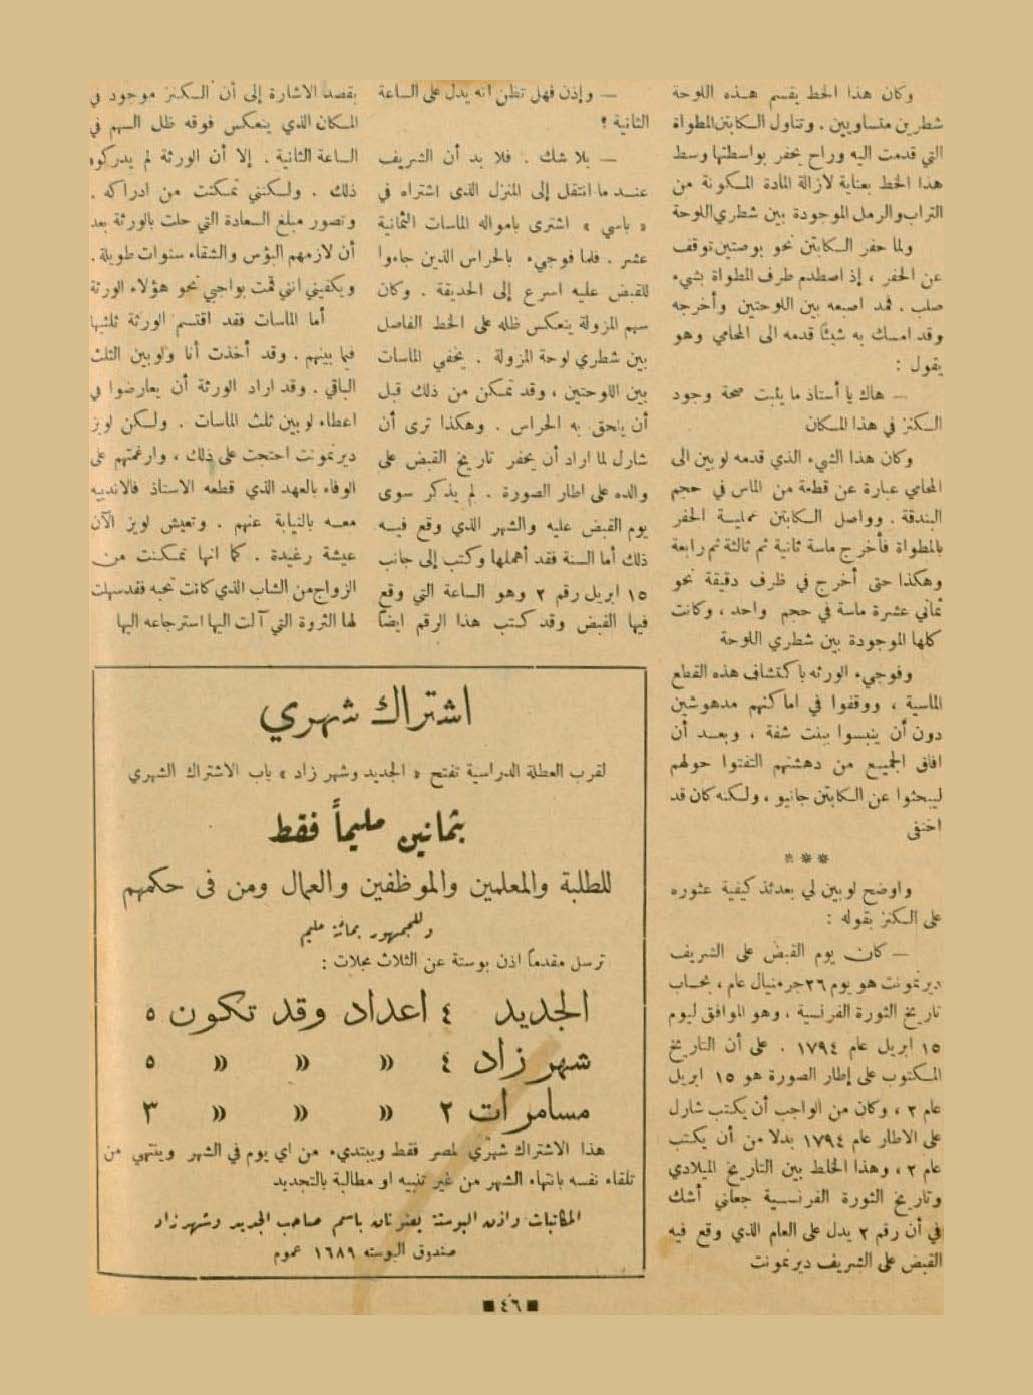 وكان هذا الخط يقسم هذه اللوحة
شطرين متساويين . وتناول الكابتن المطواة
التي قدمت اليه وراح يحفر بواسطتها وسط
هذا الخط بعناية لازالة المادة المكونة من
التراب والرمل الموجودة بين شطري اللوحة
ولما حفر الكابتن نحو بوصتين توقف
عن الحفر ، إذ اصطدم طرف المطواة بشيء
صلب . فمد اصبعه بين اللوحتين وأخرجه
وقد امسك به شيئاً قدمه الى المحامي وهو
يقول :
— هاك يا أستاذ ما يثبت صحة وجود
الكنز في هذا المكان
وكان هذا الشيء الذي قدمه لوبين الى
المحامي عبارة عن قطعة من الماس في حجم
البندقة . وواصل الكابتن عملية الحفر
بالمطواة فأخرج ماسة ثانية ثم ثالثة ثم رابعة
وهكذا حتى أخرج في ظرف دقيقة نحو
ثماني عشرة ماسة في حجم واحد ، وكانت
كلها الموجودة بين شطري اللوحة
وفوجيء الورثه باكتشاف هذه القطع
الماسية ، ووقفوا في اماكنهم مدهوشين
دون أن ينبسوا ببنت شفة ، وبعد أن
افاق الجميع من دهشتهم التفتوا حولهم
ليبحثوا عن الكابتن جانيو ، ولكنه كان قد
اختفى
***
واوضح لوبين لي بعدئذ كيفية عثوره
على الكنز بقوله :
— كان يوم القبض على الشريف
ديرنمونت هو يوم ٢٦ جرمنيال عام ، بحساب
تاريخ الثورة الفرنسية ، وهو الموافق ليوم
١٥ ابريل عام ١٧٩٤ . على أن التاريخ
المكتوب على إطار الصورة هو ١٥ ابريل
عام ٢ ، وكان من الواجب أن يكتب شارل
على الاطار عام ١٧٩٤ بدلا من أن يكتب
عام ٢ ، وهذا الخلط بين التاريخ الميلادي
وتاريخ الثورة الفرنسية جعلني أشك
في أن رقم ٢ يدل على العام الذي وقع فيه
القبض على الشريف ديرنمونت
— وإذن فهل تظن انه يدل على الساعة
الثانية ؟
— بلا شك . فلا بد أن الشريف
عند ما انتقل إلى المنزل الذي اشتراه في
« باسي » اشترى بامواله الماسات الثمانية
عشر . فلما فوجيء بالحراس الذين جاءوا
للقبض عليه اسرع إلى الحديقة . وكان
سهم المزولة ينعكس ظله على الخط الفاصل
بين شطري لوحة المزولة . يخفي الماسات
بين اللوحتين ، وقد تمكن من ذلك قبل
أن يلحق به الحراس . وهكذا ترى أن
شارل لما اراد أن يحفر تاريخ القبض على
والده على اطار الصورة . لم يذكر سوى
يوم القبض عليه والشهر الذي وقع فيه
ذلك أما السنة فقد أهملها وكتب إلى جانب
١٥ ابريل رقم ٢ وهو الساعة التي وقع
فيها القبض وقد كتب هذا الرقم ايضاً
بقصد الاشارة إلى أن الكنز موجود في
المكان الذي ينعكس فوقه ظل السهم في
الساعة الثانية . إلا أن الورثة لم يدركوا
ذلك . ولكنني تمكنت من ادراكه .
وتصور مبلغ السعادة التي حلت بالورثة بعد
أن لازمهم البؤس والشقاء سنوات طويلة .
ويكفيني انني قمت بواجبي نحو هؤلاء الورثة
أما الماسات فقد اقتسم الورثة ثلثيها
فيما بينهم . وقد أخذت أنا ولوبين الثلث
الباقي . وقد اراد الورثة أن يعارضوا في
اعطاء لوبين ثلث الماسات . ولكن لويز
ديرنمونت احتجت على ذلك ، وارغمتهم على
الوفاء بالعهد الذي قطعه الاستاذ فالانديه
معه بالنيابة عنهم . وتعيش لويز الآن
عيشة رغيدة . كما انها تمكنت من
الزواج من الشاب الذي كانت تحبه فقد سهلت
لها الثروة التي آلت اليها استرجاعه اليها
اشتراك شهري
لقرب العطلة الدراسية تفتح « الجديد وشهر زاد » باب الاشتراك الشهري
بثمانين مليماً فقط
للطلبة والمعلمين والموظفين والعمال ومن فى حكمهم
وللجمهور بمائة مليم
ترسل مقدماً اذن بوستة عن الثلاث مجلات :
الجديد ٤ اعداد وقد تكون ٥
شهر زاد ٤ » » » ٥
مسامرات ٢ » » » ٣
هذا الاشتراك شهري لمصر فقط ويبتديء من اي يوم في الشهر وينتهي من
تلقاء نفسه بانتهاء الشهر من غير تنبيه او مطالبة بالتجديد
المكاتبات واذن البوستة بعنوان باسم صاحب الجديد وشهر زاد
صندوق البوسته ١٦٨٩ عموم
■ ٤٦ ■